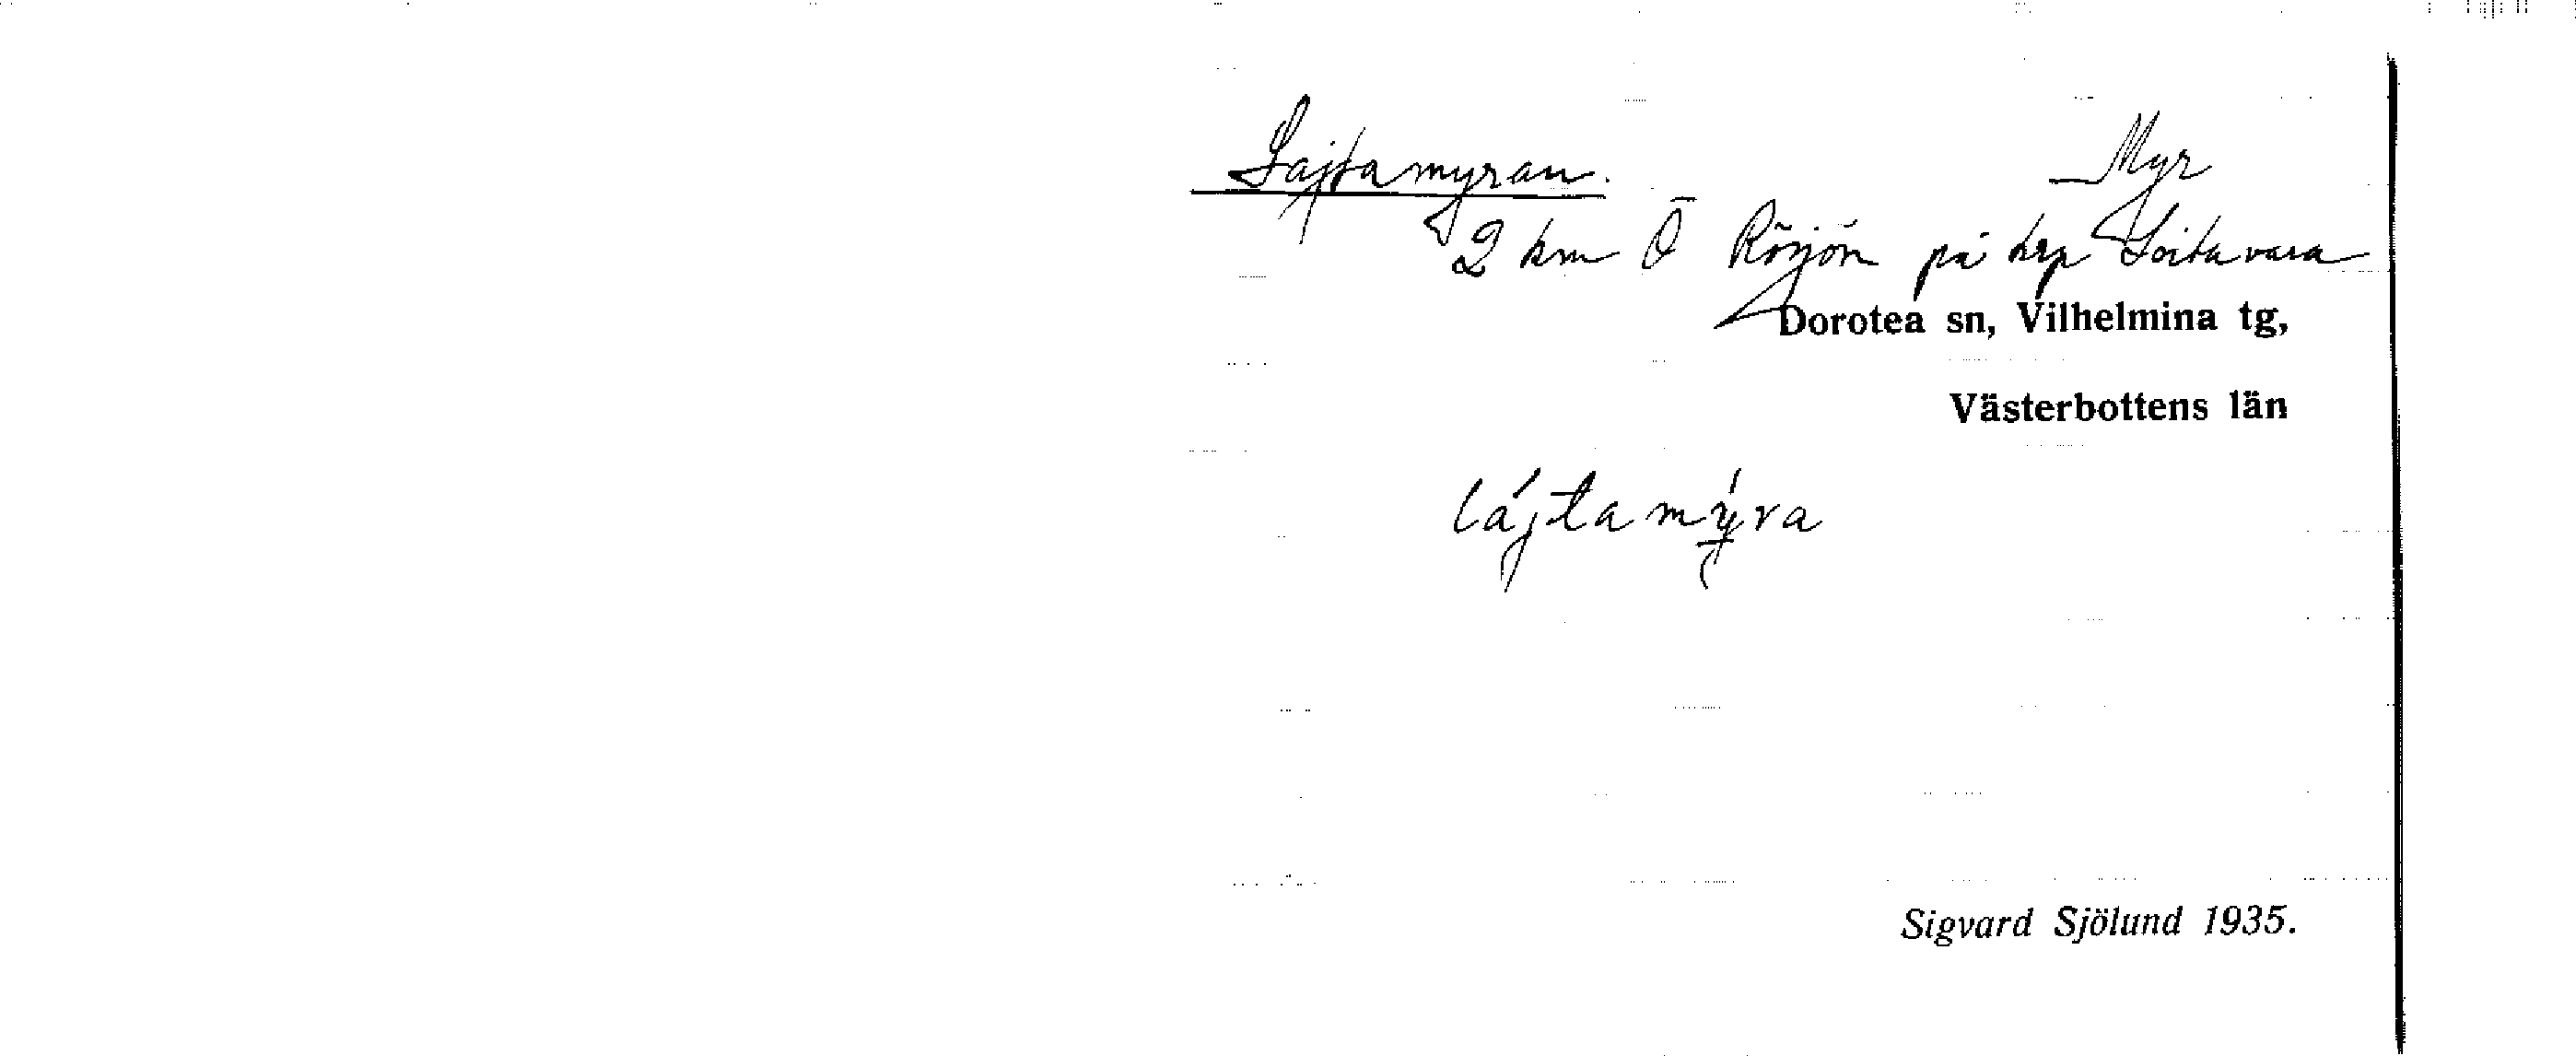 Lajtamyran. Myr
2 km Ö Röjön på krp Loitavara
Dorotea sn, Vilhelmina tg,
Västerbottens län
lájtamy̌ra
Sigvard Sjölund 1935.